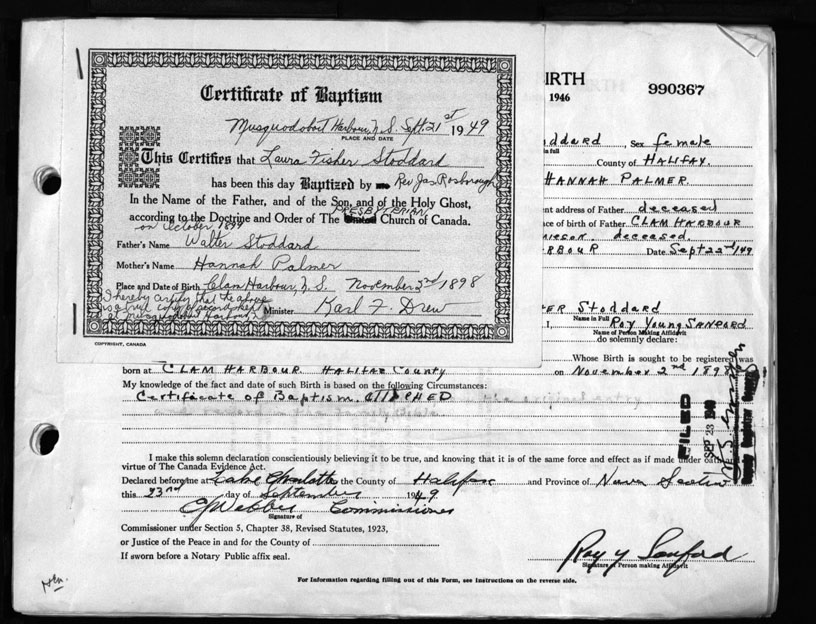 Certificate of Baptism
Musquodoboit Harbour, N.S. Sept. 21st 1949
PLACE AND DATE
This Certifies that Laura Fisher Stoddard
has been this day Baptized by Rev Jas Rosborough
In the Name of the Father, and of the Son, and of the Holy Ghost,
PRESBYTERIAN
according to the Doctrine and Order of The United Church of Canada.
on October 1899
Father's Name Walter Stoddard
Mother's Name Hannah Palmer
Place and Date of Birth Clam Harbour, N.S. November 3rd 1898
I hereby certify that the above
is a true copy of record kept
at Musquodoboit Harbour
Minister Karl F. Drew
COPYRIGHT, CANADA
IRTH
1946
990367
ddard, Sex female
in full
County of HALIFAX.
HANNAH PALMER.
nt address of Father deceased
ce of birth of Father CLAM HARBOUR
deceased.
RBOUR Date Sept 22nd 1949
ER Stoddard
Name in Full
I, ROY YOUNG SANFORD
Name of Person Making Affidavit
do solemnly declare:
Whose Birth is sought to be registered was
born at CLAM HARBOUR HALIFAX County on November 2nd 1898
My knowledge of the fact and date of such Birth is based on the following Circumstances:
Certificate of Baptism. ATTACHED
FILED
SEP 23 1949
I make this solemn declaration conscientiously believing it to be true, and knowing that it is of the same force and effect as if made under oath
virtue of The Canada Evidence Act.
Declared before me at Lake Charlotte the County of Halifax and Province of Nova Scotia
this 23rd day of September 1949
C J Webber Commissioner
Signature of
Commissioner under Section 5, Chapter 38, Revised Statutes, 1923,
or Justice of the Peace in and for the County of
If sworn before a Notary Public affix seal.
Roy Y Sanford
Signature of Person making Affidavit
For Information regarding filling out of this Form, see Instructions on the reverse side.